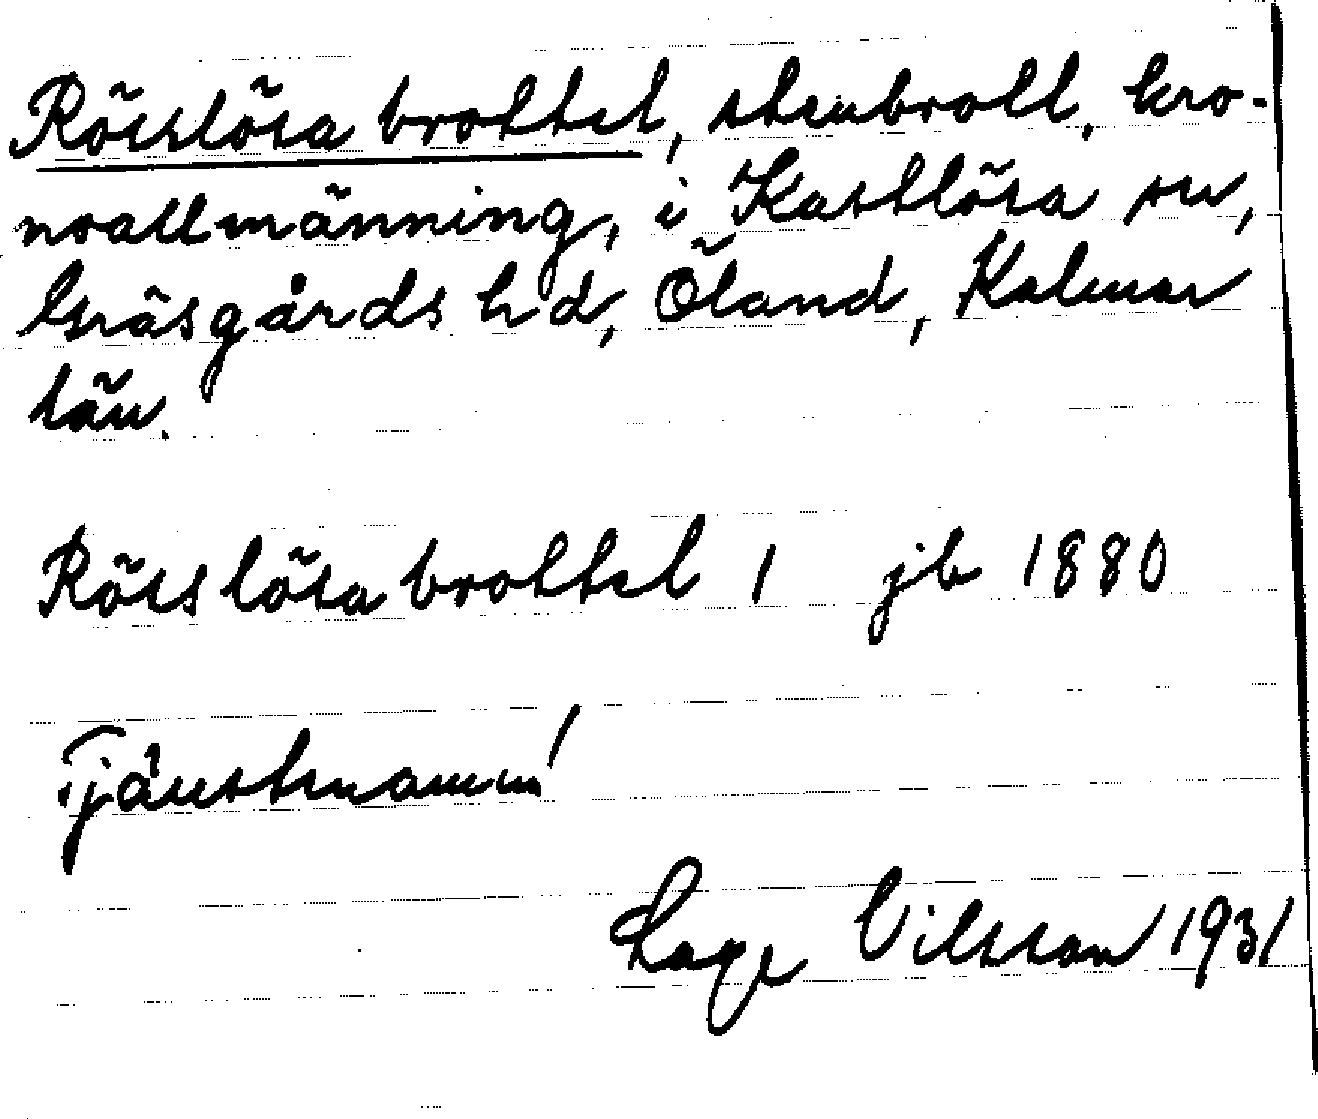 Rösslösa brottet, stenbrott, kro-
noallmänning, i Kastlösa sn,
Gräsgårds hd, Öland, Kalmar
län.
Rösslösa brottet 1 jb 1880
Tjänstenamn!
Lage Vilsson 1931